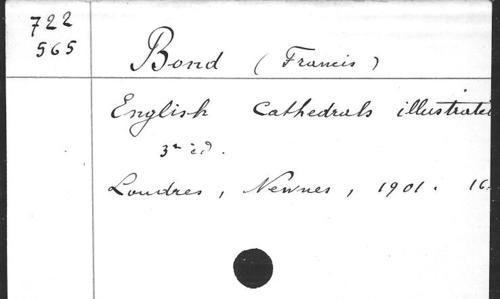 722
565
Bond (Francis)
English Cathedrals illustrated
3e éd.
Londres, Newnes, 1901. 16